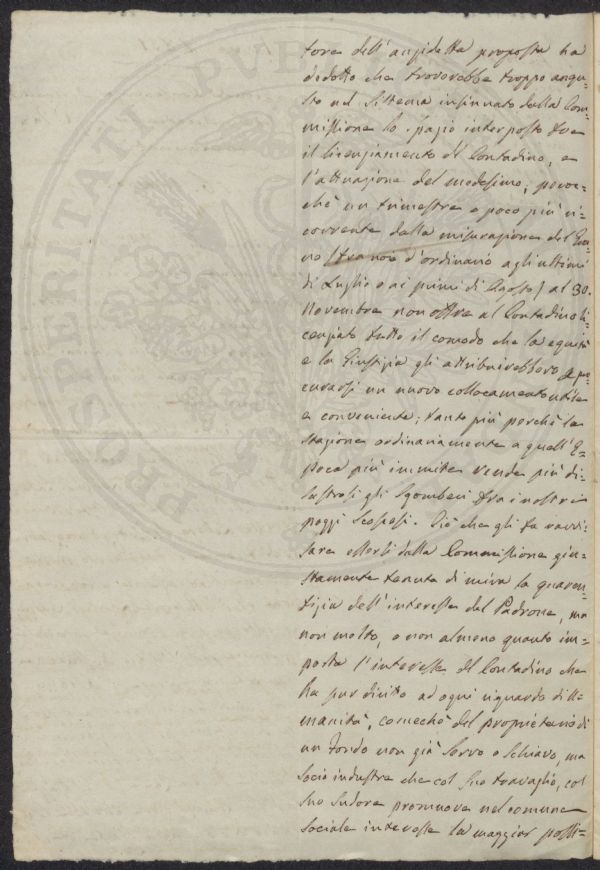 PROSPERITATI PUBL
tore dell'anzidetta proposta ha
dedotto che troverebbe troppo angu-
sto nel Sistema insinuato dalla Com-
missione lo spazio interposto tra
il licenziamento del Contadino, e
l'attuazione del medesimo, poiche
chè un trimestre e poco più ri-
corrente dalla misurazione del Gra-
no (tra noi d'ordinario agli ultimi
di Luglio o ai primi di Agosto) al 30.
Novembre non offre al Contadino li-
cenziato tutto il comodo che la equità
e la Giustizia gli attribuirebbero a pro-
curarsi un nuovo collocamento utile
e conveniente; tanto più perchè la
stagione ordinariamente a quell'E-
poca più immite rende più di-
sastrosi gli Sgomberi tra i nostri
poggi scoscesi. Ciò che gli fa ravvi-
sare essersi dalla Commissione giu-
stamente tenuta di mira la guaren-
tigia dell'interesse del Padrone, ma
non molto, o non almeno quanto im-
porta l'interesse del Contadino che
ha pur diritto ad ogni riguardo di U-
manità, comechè del proprietario di
un fondo non già Servo o Schiavo, ma
Socio industre che col suo travaglio, col
suo sudore promuove nel comune
sociale interesse la maggior possi-